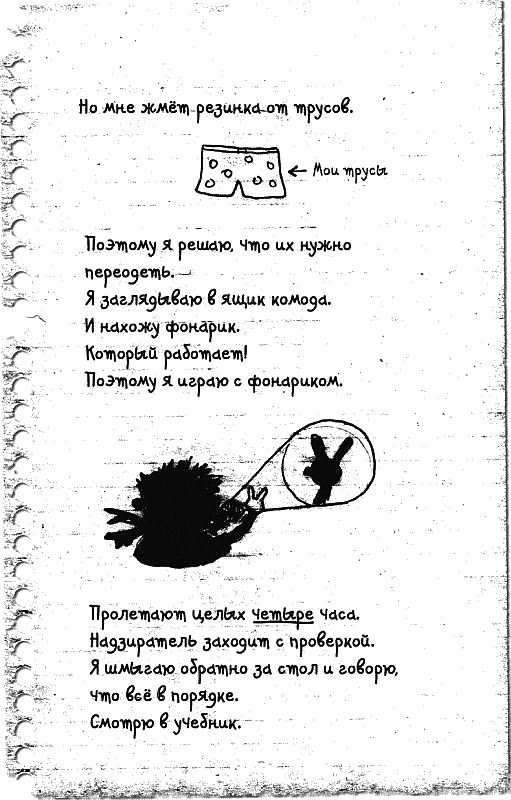 Но мне жмёт резинка от трусов.
Мои трусы
Поэтому я решаю, что их нужно
переодеть.
Я заглядываю в ящик комода.
И нахожу фонарик.
Который работает!
Поэтому я играю с фонариком.
Пролетают целых четыре часа.
Надзиратель заходит с проверкой.
Я шмыгаю обратно за стол и говорю,
что всё в порядке.
Смотрю в учебник.